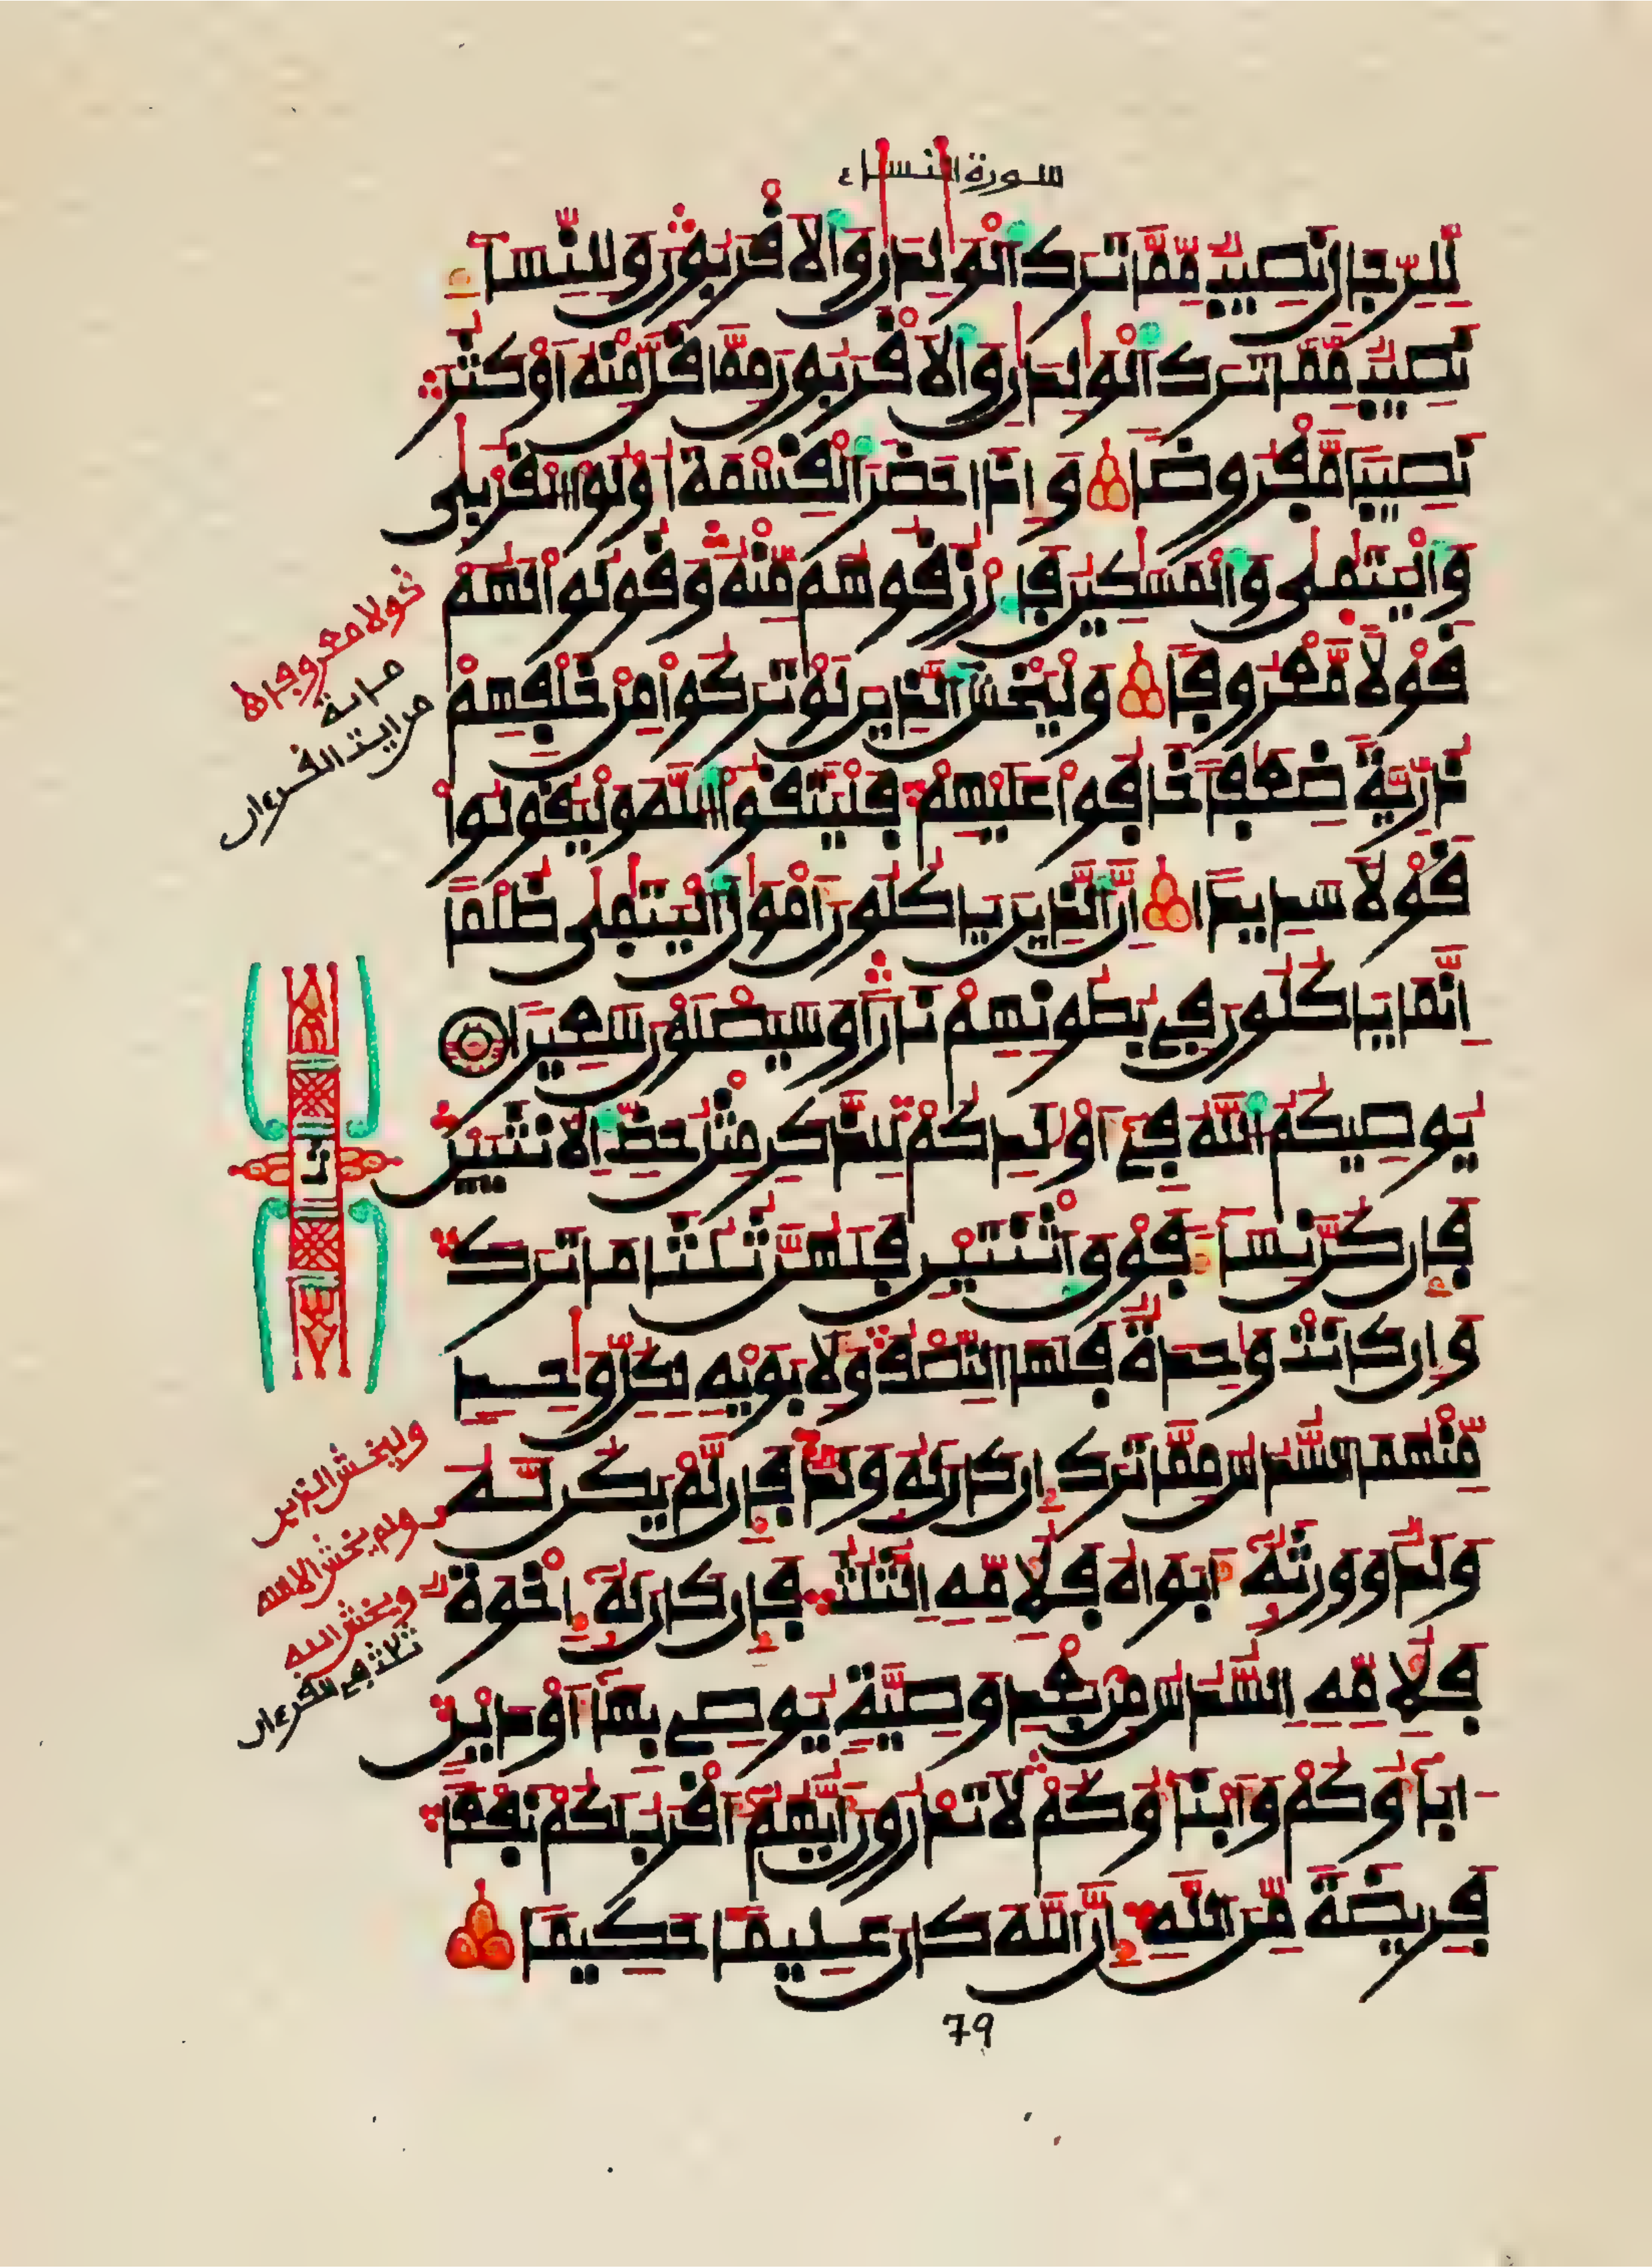 سورة النساء
لِّلرِّجَالِ نَصِيبٌ مِّمَّا تَرَكَ ٱلْوَٰلِدَٰنِ وَٱلَاقْرَبُونَ وَلِلنِّسَآءِ
نَصِيبٌ مِّمَّا تَرَكَ ٱلْوَٰلِدَٰنِ وَٱلَاقْرَبُونَ مِمَّا قَلَّ مِنْهُ أَوْ كَثُرَ
نَصِيبًا مَّفْرُوضًا وَإِذَا حَضَرَ ٱلْقِسْمَةَ أُوْلُواْ ٱلْقُرْبَىٰ
وَٱلْيَتَٰمَىٰ وَٱلْمَسَٰكِينُ فَٱرْزُقُوهُم مِّنْهُ وَقُولُواْ لَهُمْ
قَوْلًا مَّعْرُوفًا وَلْيَخْشَ ٱلَّذِينَ لَوْ تَرَكُواْ مِنْ خَلْفِهِمْ
ذُرِّيَّةً ضِعَٰفًا خَافُواْ عَلَيْهِمْ فَلْيَتَّقُواْ ٱللَّهَ وَلْيَقُولُواْ
قَوْلًا سَدِيدًا إِنَّ ٱلَّذِينَ يَاكُلُونَ أَمْوَٰلَ ٱلْيَتَٰمَىٰ ظُلْمًا
اِنَّمَا يَاكُلُونَ فِي بُطُونِهِمْ نَارًا وَسَيَصْلَوْنَ سَعِيرًا
يُوصِيكُمُ ٱللَّهُ فِےٓ أَوْلَٰدِكُمْ لِلذَّكَرِ مِثْلُ حَظِّ ٱلُانثَيَيْنِ
فَإِن كُنَّ نِسَآءً فَوْقَ ٱثْنَتَيْنِ فَلَهُنَّ ثُلُثَا مَا تَرَكَ
وَإِن كَانَتْ وَٰحِدَةٌ فَلَهَا ٱلنِّصْفُ وَلِأَبَوَيْهِ لِكُلِّ وَٰحِدٍ
مِّنْهُمَا ٱلسُّدُسُ مِمَّا تَرَكَ إِن كَانَ لَهُ وَلَدٌ فَإِن لَّمْ يَكُن لَّهُ
وَلَدٌ وَوَرِثَهُۥٓ أَبَوَاهُ فَلِأُمِّهِ ٱلثُّلُثُ فَإِن كَانَ لَهُۥٓ إِخْوَةٌ
فَلِأُمِّهِ ٱلسُّدُسُ مِنۢ بَعْدِ وَصِيَّةٍ يُوصِے بِهَآ أَوْ دَيْنٍ
ءَابَآؤُكُمْ وَأَبْنَآؤُكُمْ لَا تَدْرُونَ أَيُّهُمُۥٓ أَقْرَبُ لَكُمْ نَفْعًا
فَرِيضَةً مِّنَ ٱللَّهِ إِنَّ ٱللَّهَ كَانَ عَلِيمًا حَكِيمًا
79
قولا معروفا
من اية القرءان
وليخش الذين
ولم يخش الا الله
ويخش الله
ثلث في القرءان